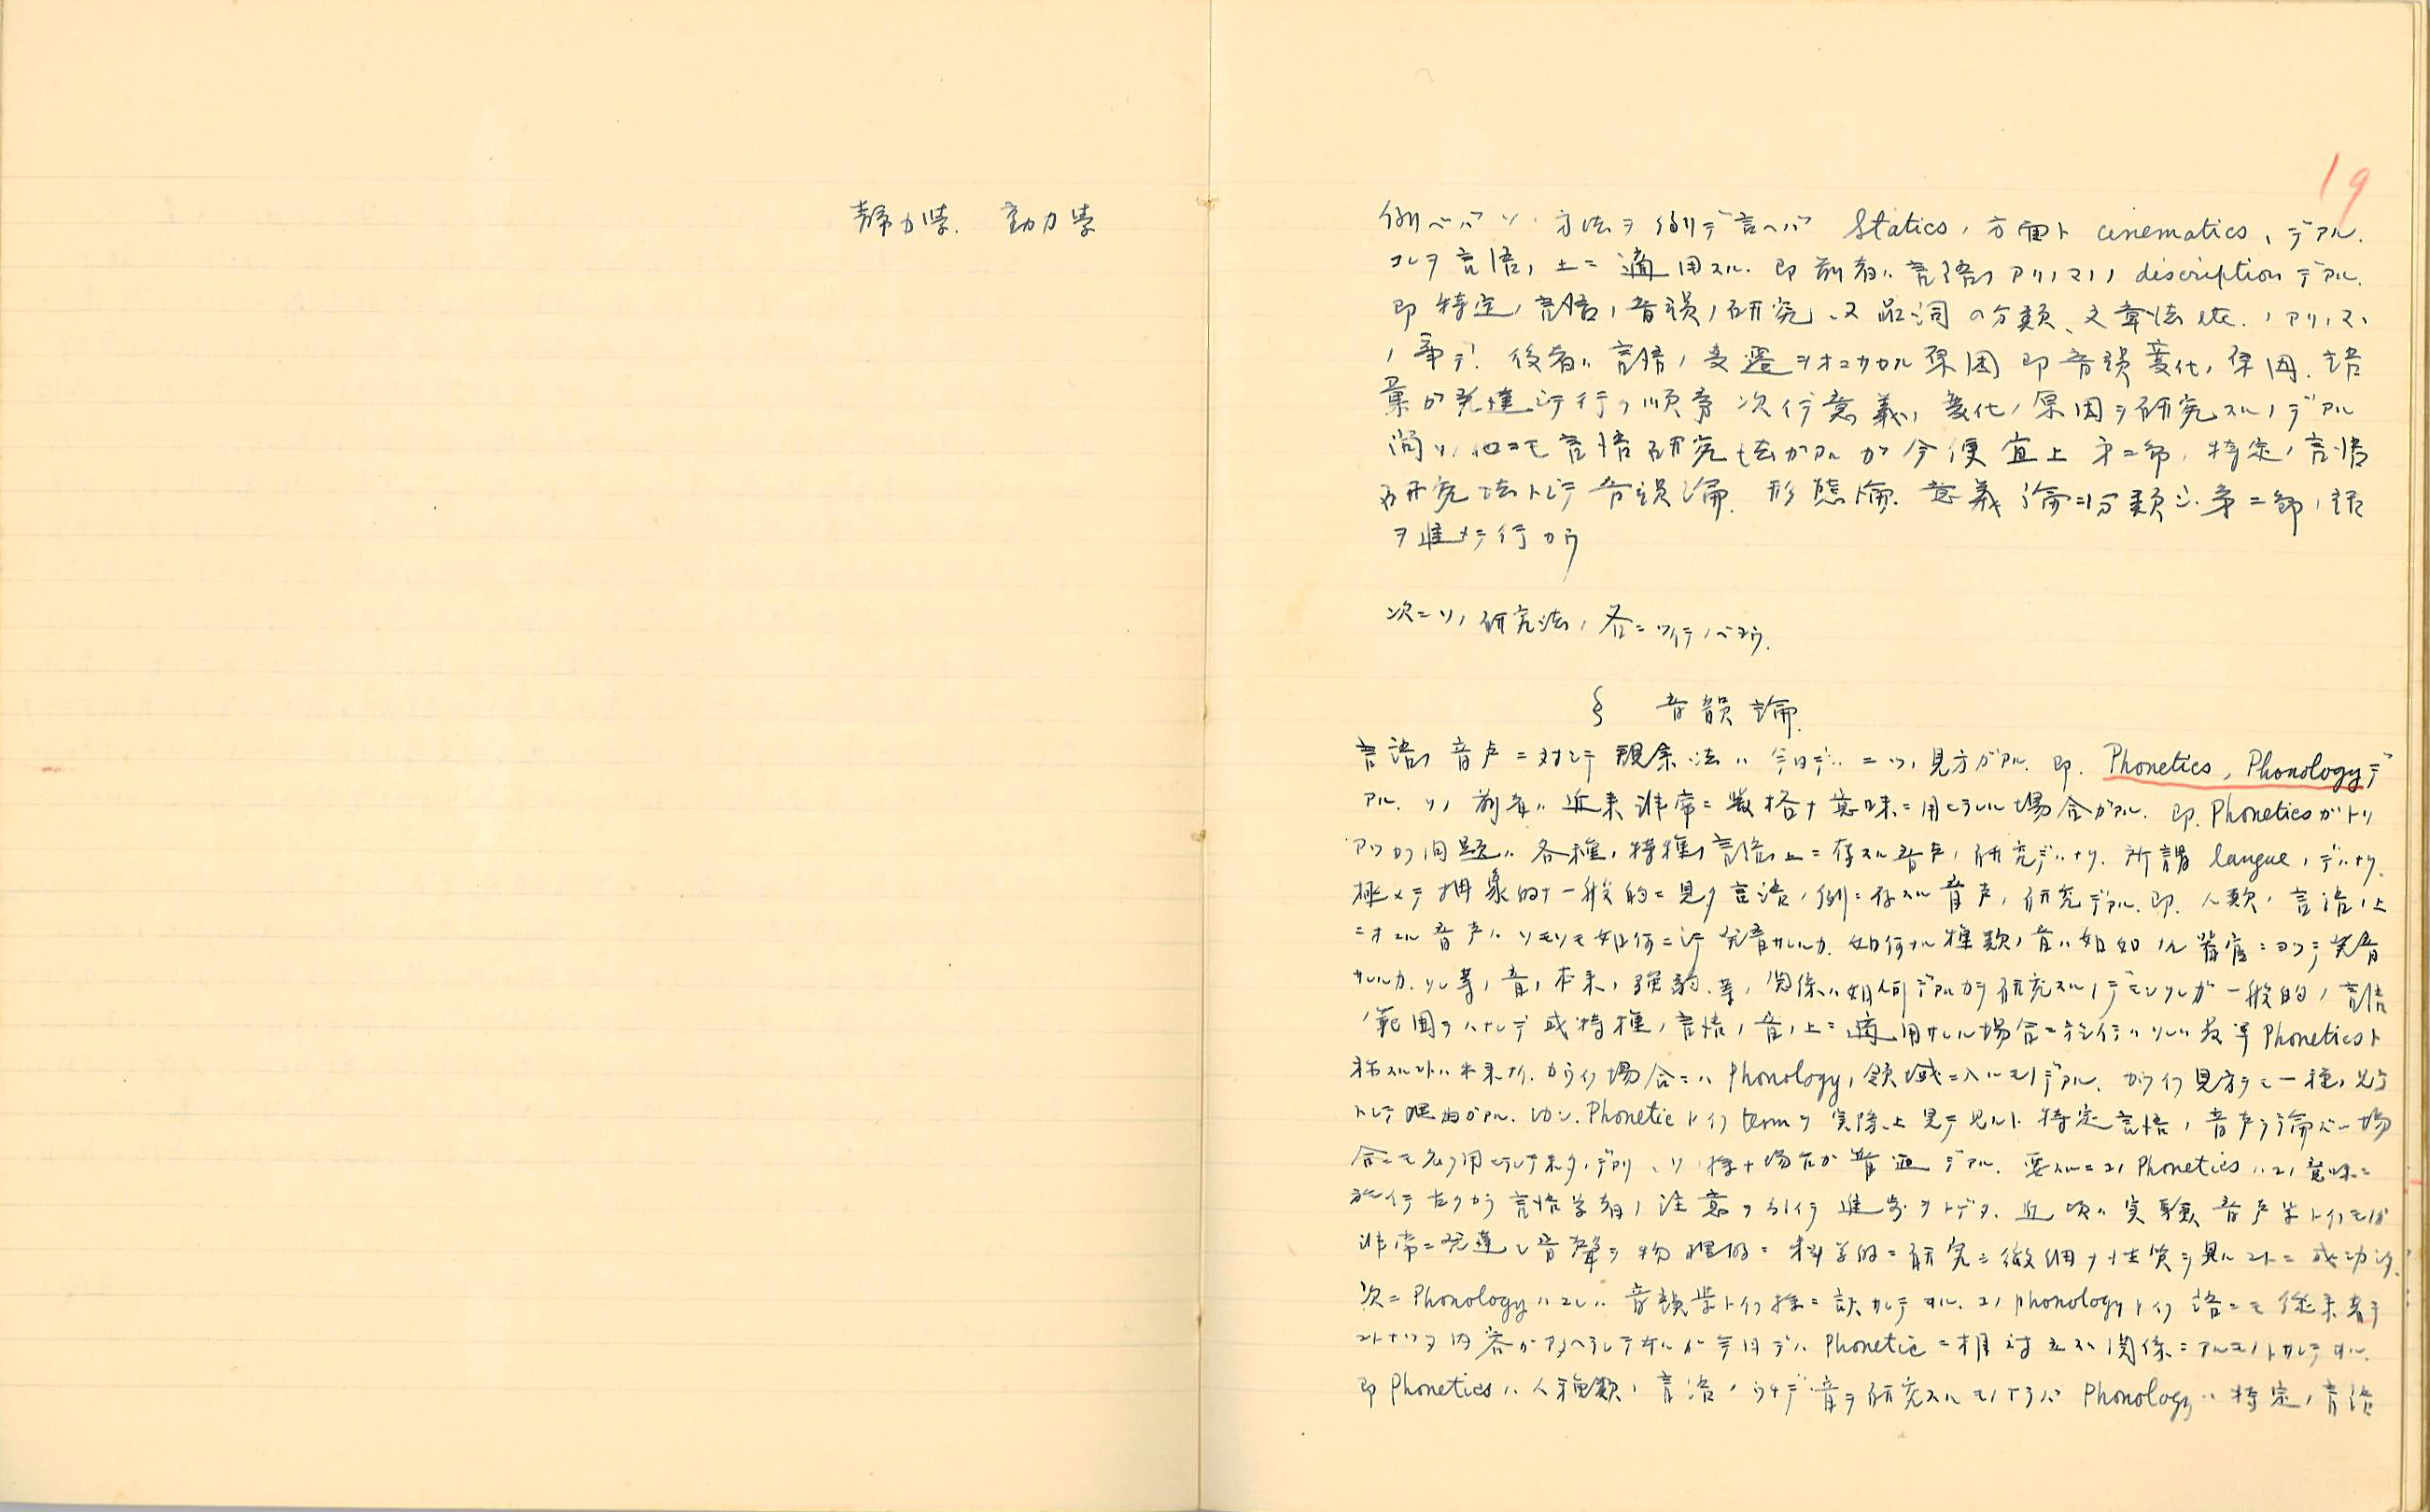 静力学. 動力学
19
例ヘバソノ方法ヲ例デ言ヘバ Statics ノ方面ト cinematics ノデアル.
コレヲ言語ノ上ニ適用スル. 即前者ハ言語ノアリノマヽノ discription デアル.
即特定ノ言語ノ音韻ノ研究、又品詞の分類、文章法 etc. ノアリノマヽ
ノ事デ. 後者ハ言語ノ変遷ヲオコサセル原因 即音韻変化ノ原因. 語
彙の発達シテ行ク順序 次イデ意義ノ変化ノ原因ヲ研究スルノデアル
尚ソノ他ニモ言語研究法ガアルガ今便宜上 第二部ノ特定ノ言語
研究法トシテ音韻論. 形態論. 意義論ニ分類シ. 第二部ノ話
ヲ進メテ行カウ
次ニソノ研究法ノ各ニツイテノベヨウ.
§ 音韻論.
言語ノ音声ニ対シテ観察法ハ今日デハ二ツノ見方ガアル. 即. Phonetics, Phonology デ
アル. ソノ前者ハ近来非常ニ厳格ナ意味ニ用ヒラレル場合ガアル. 即. Phonetics ガトリ
アツカフ問題ハ各種ノ特種ノ言語ノ上ニ存スル音声ノ研究デハナク. 所謂 langue ノデハナク.
極メテ抽象的ナ一般的ニ見タ言語ノ例ニ存スル音声ノ研究デアル. 即. 人類ノ言語ノ上
ニオコル音声ハソモソモ如何ニシテ発音サレルカ. 如何ナル種類ノ音ハ如何ナル器官ニヨツテ発音
サレルカ. ソレ等ノ音ノ本来ノ強弱. 等ノ関係ハ如何デアルカヲ研究スルノデモシソレガ一般的ノ言語
ノ範囲ヲハナレテ或特種ノ言語ノ音ノ上ニ適用サレル場合ニ於イテハソレハ最早 Phonetics ト
称スルコトハ出来ナイ. カウイフ場合ニハ Phonology ノ領域ニ入ルモノデアル. カウイフ見方ヲモ一種ノ見方
トシテ理由ガアル. シカシ. Phonetic トイフ term ヲ実際上見テ見ルト 特定言語ノ音声ヲ論ズル場
合ニモ広ク用ヒラレテ来タノデアリ、ソノ様ナ場合ガ普通デアル. 要スルニコノ Phonetics ハコノ意味ニ
於イテ古クカラ言語学者ノ注意ヲ引イテ進歩ヲトゲタ. 近頃ハ実験音声学トイフモノガ
非常ニ発達シ音聲ヲ物理的ニ科学的ニ研究シ微細ナ性質ヲ見ルコトニ成功シタ.
次ニ Phonology ハコレハ音韻学トイフ様ニ訳サレテオル. コノ phonology トイフ語ニモ従来
コトナツタ内容ガアタヘラレテオルガ今日デハ Phonetic ニ相対立スル関係ニアルモノトサレテオル.
即 Phonetics ハ人種類ノ言語ノウチデ音ヲ研究スルモノナラバ Phonology ハ特定ノ言語